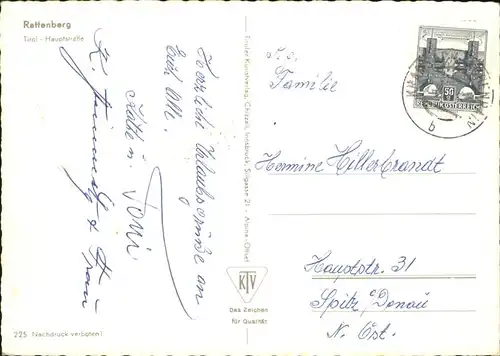 Rattenberg
Tirol - Hauptstraße
Herzliche Urlaubsgrüße an
Euch All.
Käthe u. Toni
K. & Frau
225 Nachdruck verboten!
Tiroler Kunstverlag Chizzali, Innsbruck, Sillgasse 21 - Alpina-Offset
KTV
Das Zeichen
für Qualität
50
REPUBLIK ÖSTERREICH
b
Familie
Hermine Hillerbrandt
Hauptstr. 31
Spitz a/d Donau
N. Öst.